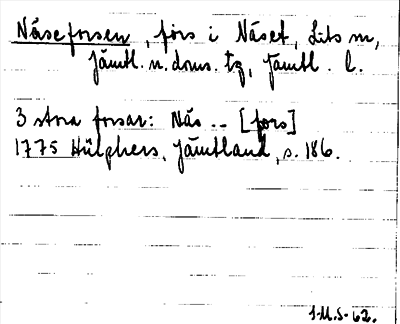 Näseforsen, fors i Näset, Lits sn,
Jämtl. n. doms. tg, Jämtl. l.
3 stora forsar: Näs .. [fors]
1775 Hülphers, Jämtland, s. 186.
J.M.S. 62.